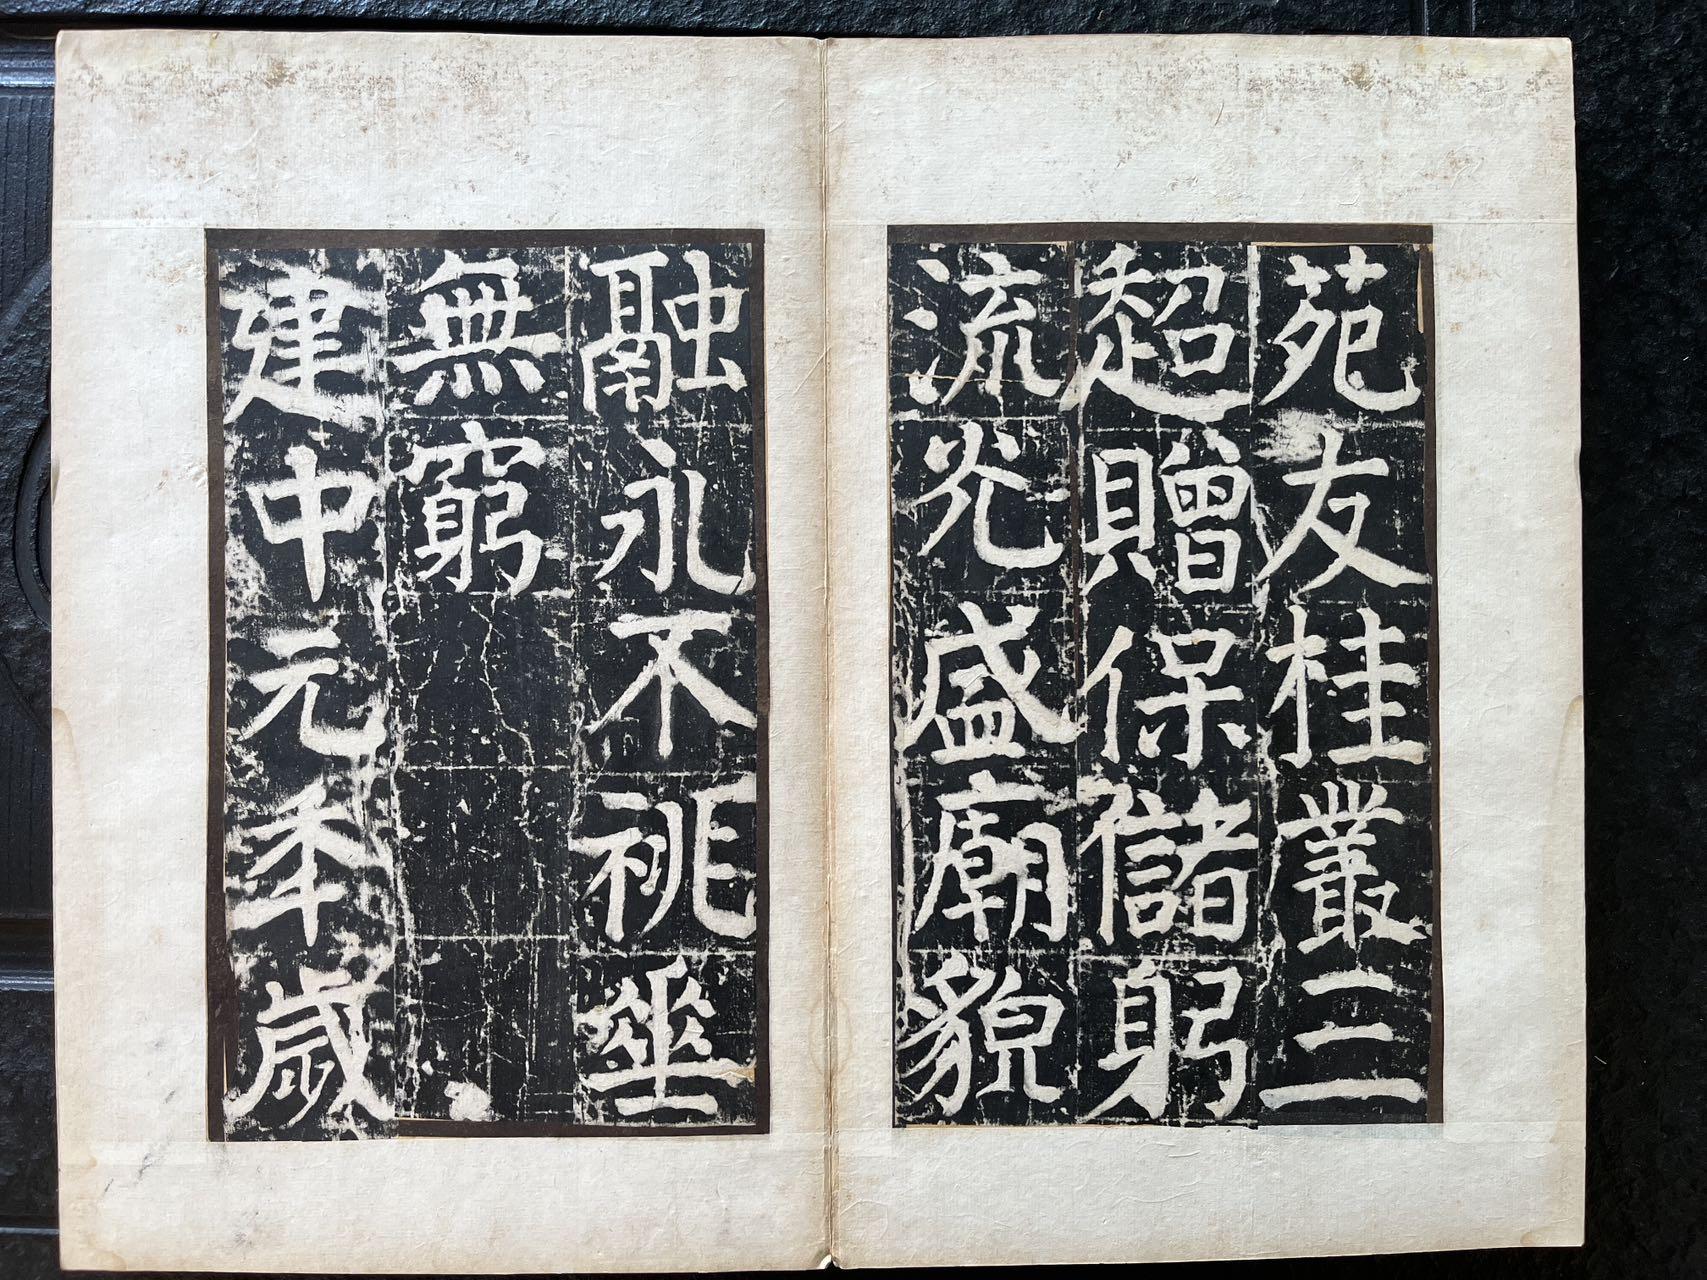 苑友桂叢三
超贈保儲躬
流光盛廟貌
融永不祧垂
無窮
建中元年歲